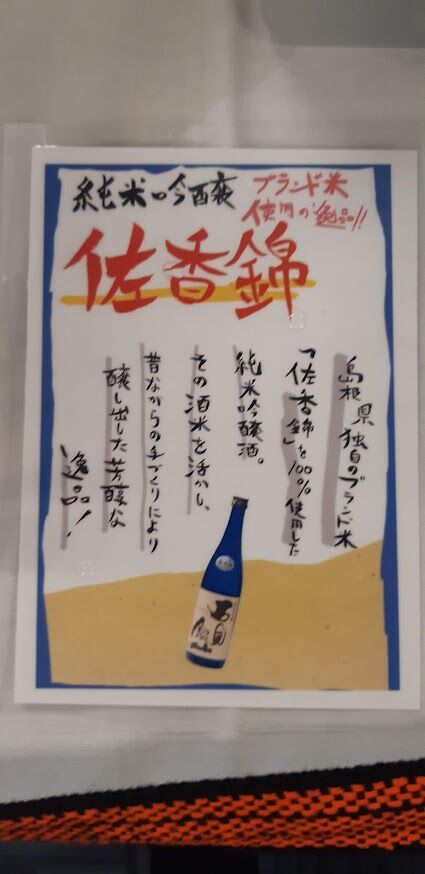 純米吟醸
ブランド米
使用の逸品!!
佐香錦
島根県独自のブランド米
「佐香錦」を100%使用した
純米吟醸酒。
その酒米を活かし、
昔ながらの手づくりにより
醸し出した芳醇な
逸品!
石見銀山